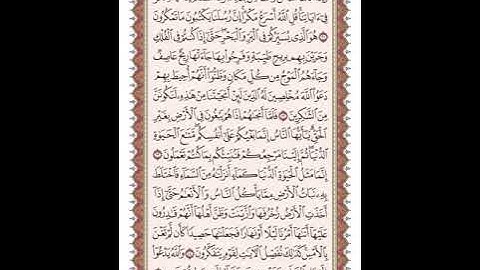 فِىٓ ءَايَاتِنَا قُلِ ٱللَّهُ أَسْرَعُ مَكْرًا إِنَّ رُسُلَنَا يَكْتُبُونَ مَا تَمْكُرُونَ
۝٢١ هُوَ ٱلَّذِى يُسَيِّرُكُمْ فِى ٱلْبَرِّ وَٱلْبَحْرِ حَتَّىٰٓ إِذَا كُنتُمْ فِى ٱلْفُلْكِ
وَجَرَيْنَ بِهِم بِرِيحٍ طَيِّبَةٍ وَفَرِحُوا۟ بِهَا جَآءَتْهَا رِيحٌ عَاصِفٌ
وَجَآءَهُمُ ٱلْمَوْجُ مِن كُلِّ مَكَانٍ وَظَنُّوٓا۟ أَنَّهُمْ أُحِيطَ بِهِمْ
دَعَوُا۟ ٱللَّهَ مُخْلِصِينَ لَهُ ٱلدِّينَ لَئِنْ أَنجَيْتَنَا مِنْ هَٰذِهِۦ لَنَكُونَنَّ
مِنَ ٱلشَّٰكِرِينَ ۝٢٢ فَلَمَّآ أَنجَىٰهُمْ إِذَا هُمْ يَبْغُونَ فِى ٱلْأَرْضِ بِغَيْرِ
ٱلْحَقِّ يَٰٓأَيُّهَا ٱلنَّاسُ إِنَّمَا بَغْيُكُمْ عَلَىٰٓ أَنفُسِكُم مَّتَٰعَ ٱلْحَيَوٰةِ
ٱلدُّنْيَا ثُمَّ إِلَيْنَا مَرْجِعُكُمْ فَنُنَبِّئُكُم بِمَا كُنتُمْ تَعْمَلُونَ ۝٢٣
إِنَّمَا مَثَلُ ٱلْحَيَوٰةِ ٱلدُّنْيَا كَمَآءٍ أَنزَلْنَٰهُ مِنَ ٱلسَّمَآءِ فَٱخْتَلَطَ
بِهِۦ نَبَاتُ ٱلْأَرْضِ مِمَّا يَأْكُلُ ٱلنَّاسُ وَٱلْأَنْعَٰمُ حَتَّىٰٓ إِذَآ
أَخَذَتِ ٱلْأَرْضُ زُخْرُفَهَا وَٱزَّيَّنَتْ وَظَنَّ أَهْلُهَآ أَنَّهُمْ قَٰدِرُونَ
عَلَيْهَآ أَتَىٰهَآ أَمْرُنَا لَيْلًا أَوْ نَهَارًا فَجَعَلْنَٰهَا حَصِيدًا كَأَن لَّمْ تَغْنَ
بِٱلْأَمْسِ كَذَٰلِكَ نُفَصِّلُ ٱلْءَايَٰتِ لِقَوْمٍ يَتَفَكَّرُونَ ۝٢٤ وَٱللَّهُ يَدْعُوٓا۟